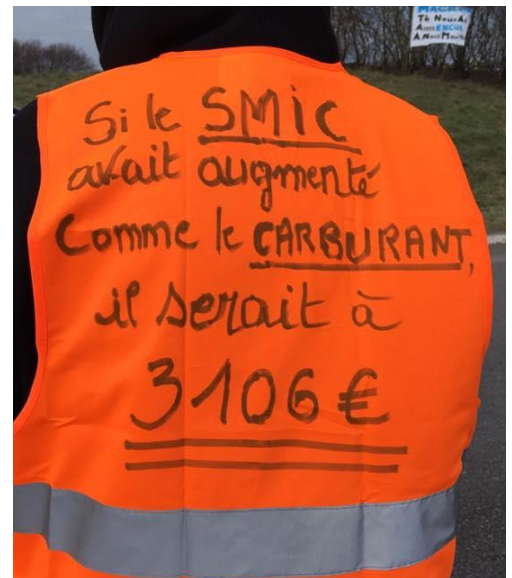 Si le SMIC
avait augmenté
Comme le CARBURANT,
il serait à
3106 €